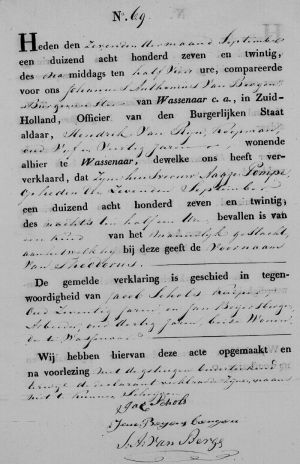 No. 69.
Heden den Zevenden der maand September
een duizend acht honderd zeven en twintig,
des na middags ten half vier ure, compareerde
voor ons Johannes Anthonius Van Bergen
Burgemeester van Wassenaar c. a., in Zuid-
Holland, Officier van den Burgerlijken Staat
aldaar, Hendrik Van Koopman,
oud Vijf en Veertig Jaren wonende
alhier te Wassenaar, dewelke ons heeft ver-
verklaard, dat Zijne huisvrouw Aagje
op heden den Zevenden September
een duizend acht honderd zeven en twintig,
des nachts ten half een Ure bevallen is van
een kind van het Mannelijk geslacht,
aan hetwelk hij bij deze geeft de Voornaam
Van Theodorus.
De gemelde verklaring is geschied in tegen-
woordigheid van Jacob Schols
Oud Zeventig Jaren, en Jan
oud dertig Jaren, beide Wonende
te Wassenaar
Wij hebben hiervan deze acte opgemaakt en
na voorlezing met de getuigen onderteekend
de declarant verklaarde
niet te kunnen Schrijven
Jac Schols
Jan
J. A. Van Bergen